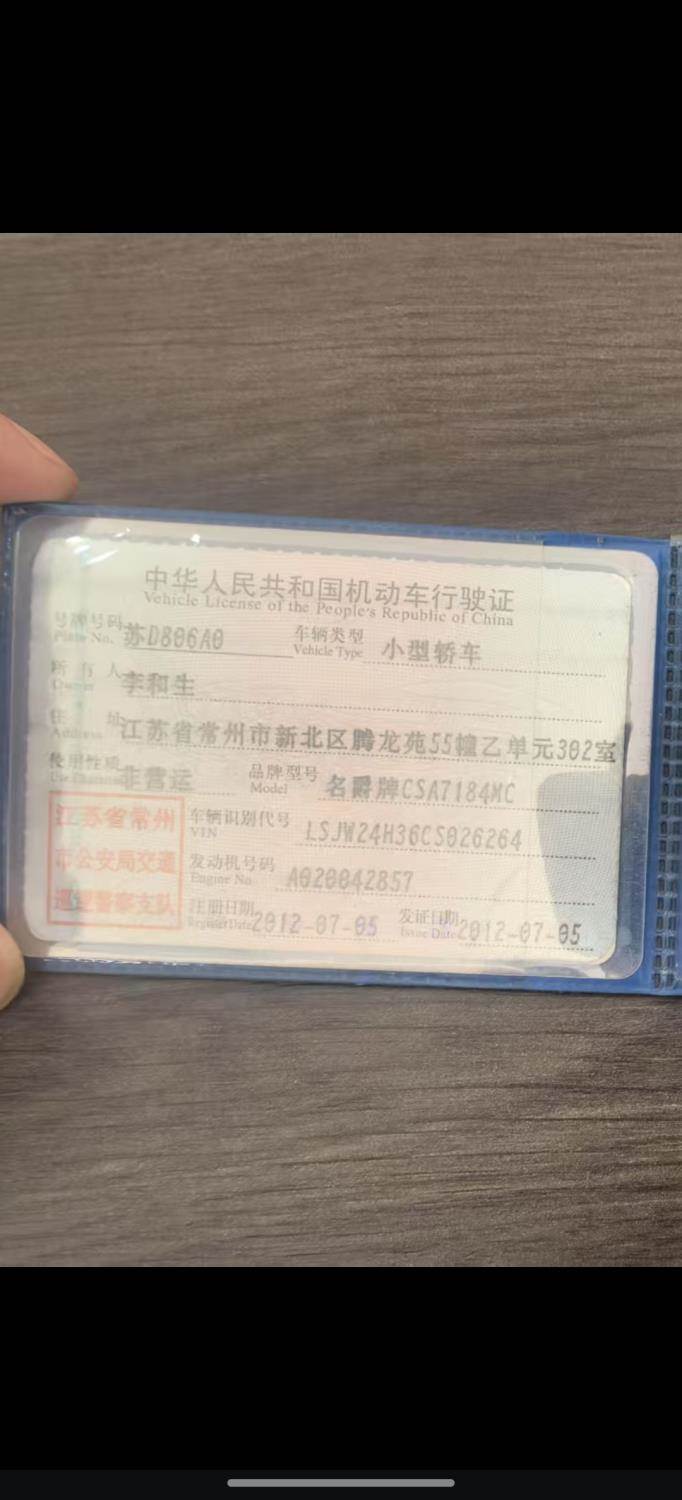 中华人民共和国机动车行驶证
Vehicle License of the People's Republic of China
号牌号码 苏D806A0 车辆类型 小型轿车
Plate No. Vehicle Type
所有人 李和生
Owner
住址 江苏省常州市新北区腾龙苑55幢乙单元302室
Address
使用性质 非营运 品牌型号 名爵牌CSA7184MC
Use Character Model
江苏省常州 车辆识别代号 LSJW24H36CS026264
VIN
市公安局交通 发动机号码 A020042857
Engine No.
巡逻警察支队 注册日期 2012-07-05 发证日期 2012-07-05
Register Date Issue Date